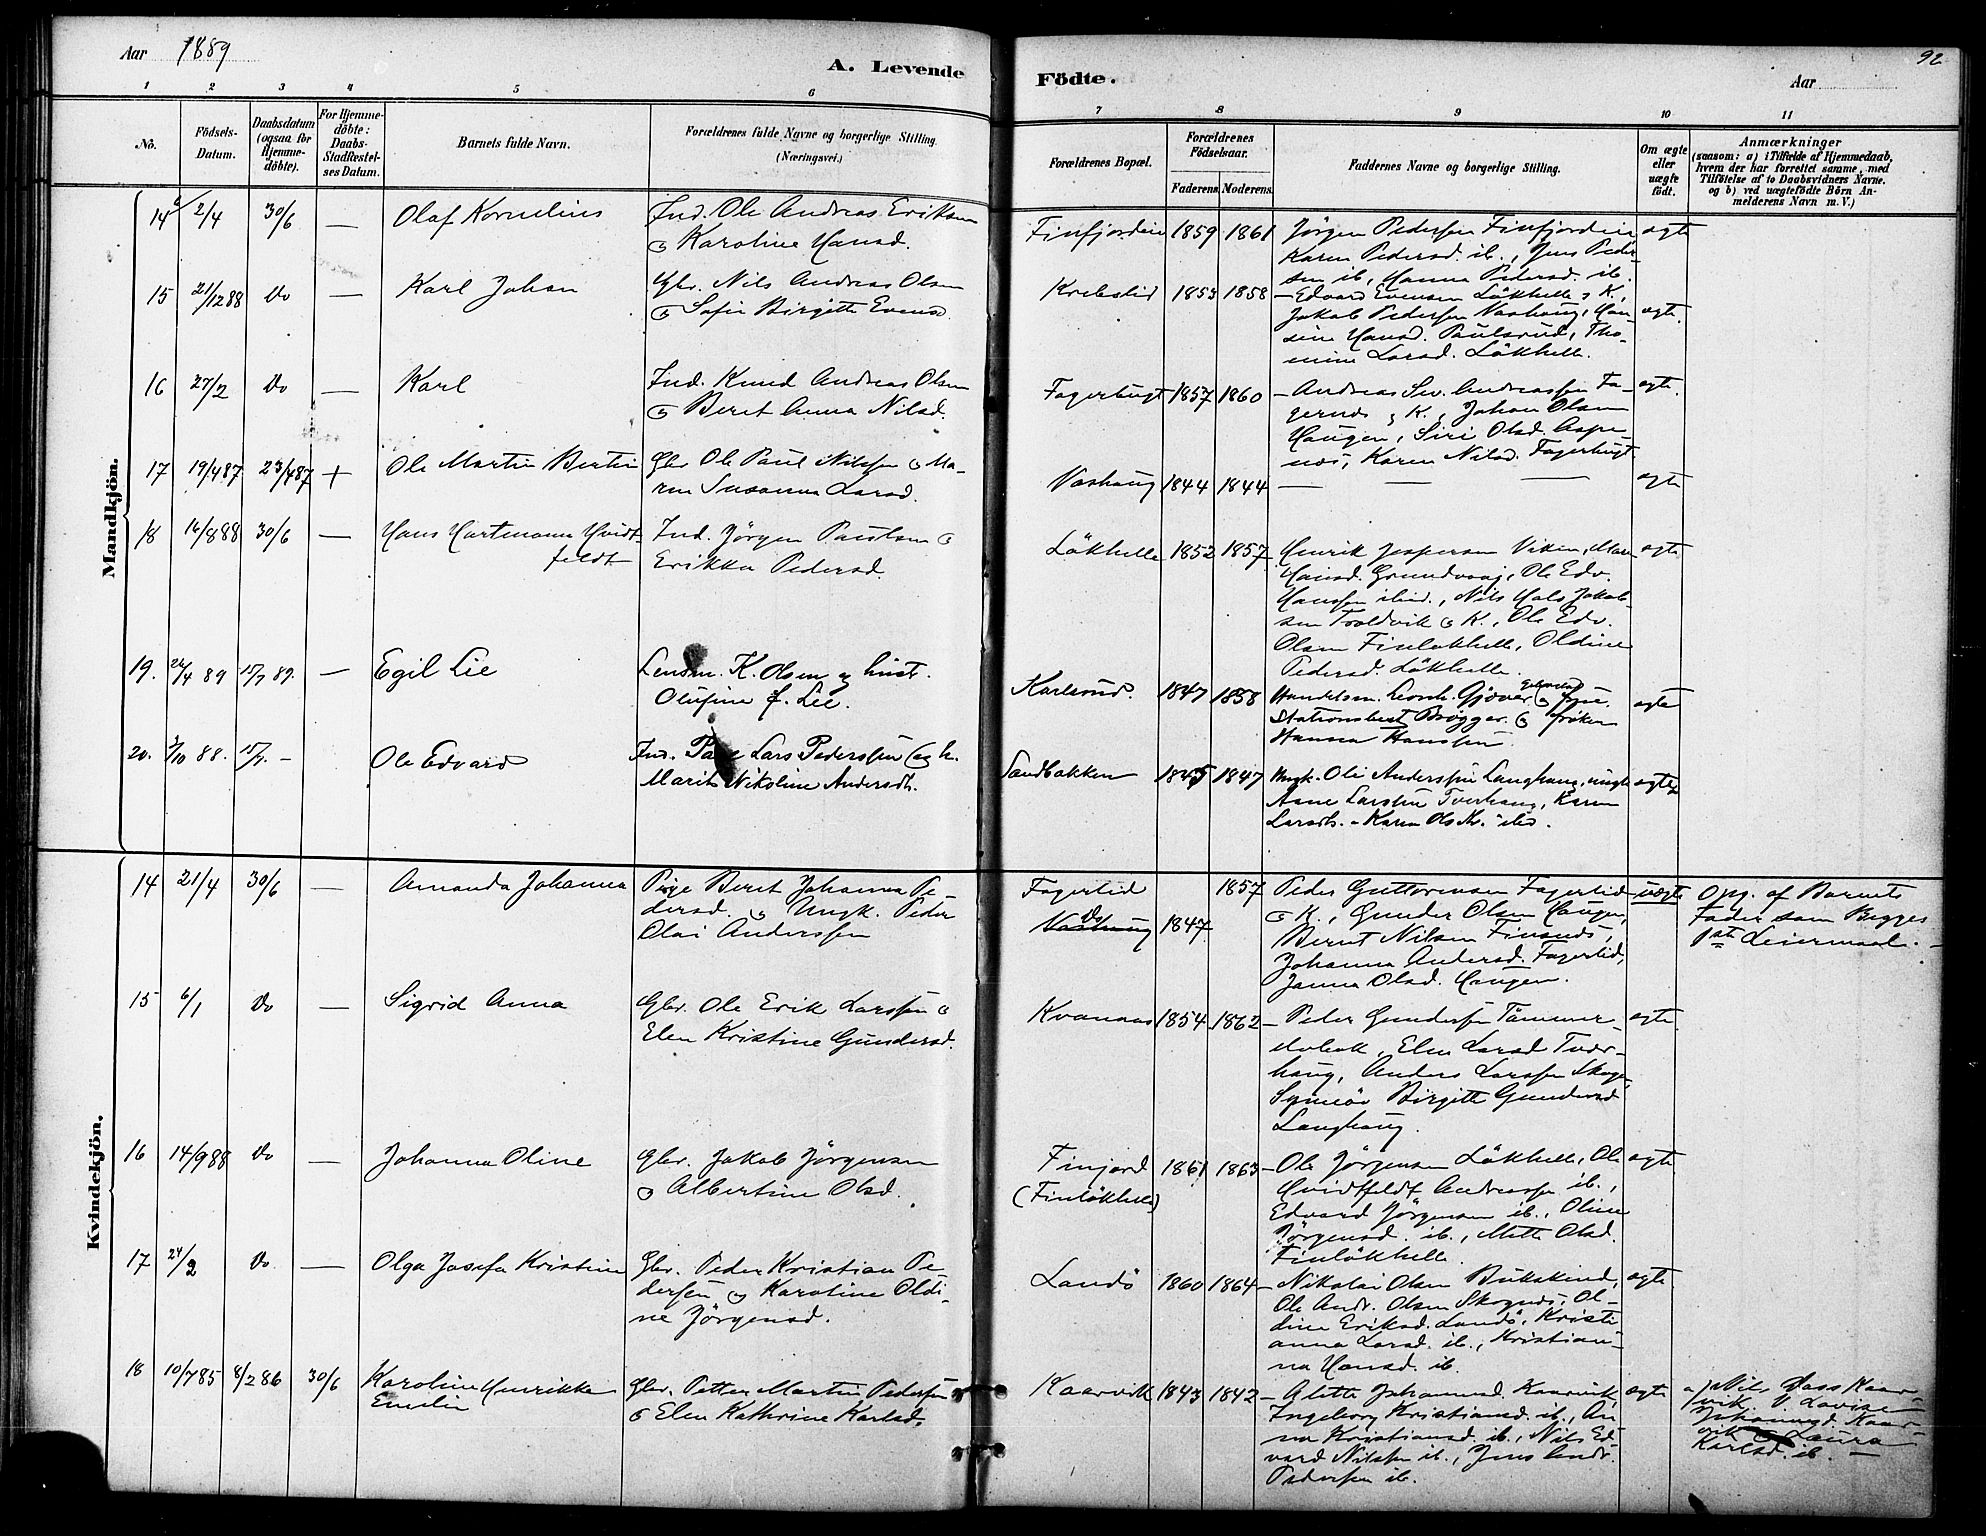 Aar 1889
A. Levende
Födte.
Aar
92
1 2 3 4 5 6 7 8 9 10 11
No.
Födsels-
Datum.
Daabsdatum
(ogsaa for
Hjemme-
döbte).
For Hjemme-
döbte:
Daabs-
Stadfæstel-
ses Datum.
Barnets fulde Navn.
Forældrenes fulde Navne og borgerlige Stilling.
(Næringsvei.)
Forældrenes Bopæl.
Forældrenes
Födselsaar.
Faderens. Moderens.
Faddernes Navne og borgerlige Stilling.
Om ægte
eller
uægte
födt.
Anmærkninger
(saasom: a) i Tilfælde af Hjemmedaab,
hvem der har forrettet samme, med
Tilföielse af to Daabsvidners Navne,
og b) ved uægtefödte Börn An-
melderens Navn m. V.)
Mandkjön.
14 2/4 30/6 — Olaf Kornelius
Ind. Ole Andreas Eriksen
o Karoline Hansd.
Finfjorden 1859 1861
Jörgen Pedersen Finfjorden
Karen Pedersd. ib., Jens Peder-
sen ib., Hanna Pedersd. ib.
ægte
15 21/12 88 Do — Karl Johan
Gbr. Nils Andreas Olsen
o Sofie Birgitte Evensd.
Krebstid 1853 1858
— Edvard Evensen Lökhelle o K.,
Jakob Pedersen Vashaug, Han-
sine Hansd. Paulsrud, Tho-
mine Larsd. Lökhelle.
ægte.
16 27/2 Do — Karl
Ind. Knud Andreas Olsen
o Beret Anna Nilsd.
Fagerbugt 1857 1860
— Andreas Sev. Andreassen Fa-
gernæs o K., Johan Olsen
Haugen, Siri Olsd. Aspe-
næs, Karen Nilsd. Fagerbugt
ægte.
17 19/4 87 23/4 87 + Ole Martin Bertin
Gbr. Ole Paul Nilssen o Ma-
ren Susanna Larsd.
Vashaug 1844 1844 — — —
ægte
18 16/8 88 30/6 — Hans Hartmann Hvidt-
feldt
Ind. Jörgen Paulsen o
Erikka Pedersd.
Lökhelle 1852 1857
Henrik Jespersen Viken, Mare
Hansd. Grundvaag, Ole Edv.
Hanssen ibid., Nils Hals Jakob-
sen Troldvik o K., Ole Edv.
Olsen Finlökhelle, Oldine
Pedersd. Lökhelle.
ægte
19. 24/4 89 15/7 89. — Egil Lie
Lensm. K. Olsen og hust.
Olufine f. Lie.
Karlsrud. 1847 1858
Handelsm. Leonh. Gjæver
Stationsbest. Brögger o fröken
Hanna Hanssen.
ægte
20. 3/10 88. 15/7. — Ole Edvard
Ind. Lars Pederssen og h.
Marit Nikoline Andersdt.
Sandbakken 1845 1847
Ungk. Ole Anderssen Langhaug, ungk
Aane Larssen Tverhaug, Karen
Larsdt. - Karen Olsdt. ibid.
ægte
Kvindekjön.
14 21/4 30/6 — Amanda Johanna
Pige Beret Johanna Pe-
dersd. o Ungk. Peder
Olai Anderssen
Fagerlid 1857
Vashaug Do 1847
Peder Guttormsen Fagerlid
o K., Gunder Olsen Haugen,
Bernt Nilsen Finsnæs,
Johanna Andersd. Fagerlid,
Janna Olsd. Haugen.
uægte
Opg. af Barnets
Fader som Begges
1ste Leiermaal. —
15 6/1 Do — Sigrid Anna
Gbr. Ole Erik Larssen o
Elen Kristine Gundersd.
Kvannaas 1854 1862
— Peder Gundersen Tömmer-
elvbak, Elen Larsd. Tver-
haug, Anders Larssen Skogen,
Synnöv Birgitte Gundersd
Langhaug.
ægte
16 14/9 88 Do — Johanna Oline
Gbr. Jakob Jörgensen
o Albertine Olsd.
Finjord
(Finlökhelle) 1861 1863
— Ole Jörgensen Lökhelle, Ole
Hvidtfeldt Andreassen ib.,
Edvard Jörgensen ib., Oline
Jörgensd. ib., Mette Olsd.
Finlökhelle.
ægte
17 24/2 Do — Olga Josefa Kristine
Gbr. Peder Kristian Pe-
dersen o Karoline Oldi-
ne Jörgensd.
Landö 1860 1864
— Nikolai Olsen Bukskind,
Ole Andr. Olsen Skognæs, Ol-
dine Eriksd. Landö, Kristi-
anna Larsd. ib., Kristian-
na Hansd. ib.
ægte
18 10/7 85 8/2 86 30/6 Karoline Henrikke
Emelie
Gbr. Petter Martin Pedersen
o Elen Kathrine Karlsd.
Kaarvik 1843 1842
— Alette Johannesd. Kaarvik,
Ingeborg Kristiansd. ib., An-
na Kristiansd. ib., Nils Ed-
vard Nilssen ib., Jens Andr.
Pedersen ib.
ægte
a) Nils Dass Kaar-
vik. V. Lovise
Johannesd. Kaar-
vik o Laura
Karlsd. ib. —